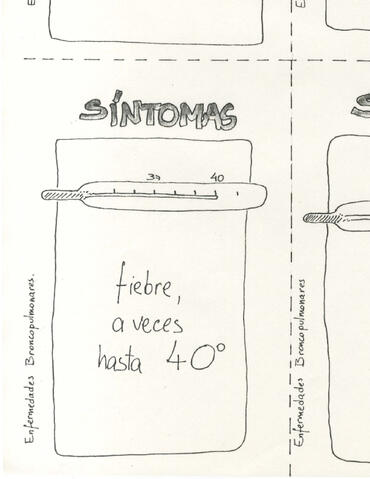 SÍNTOMAS
37 40
fiebre,
a veces
hasta 40°
Enfermedades Broncopulmonares.
Enfermedades Broncopulmonares